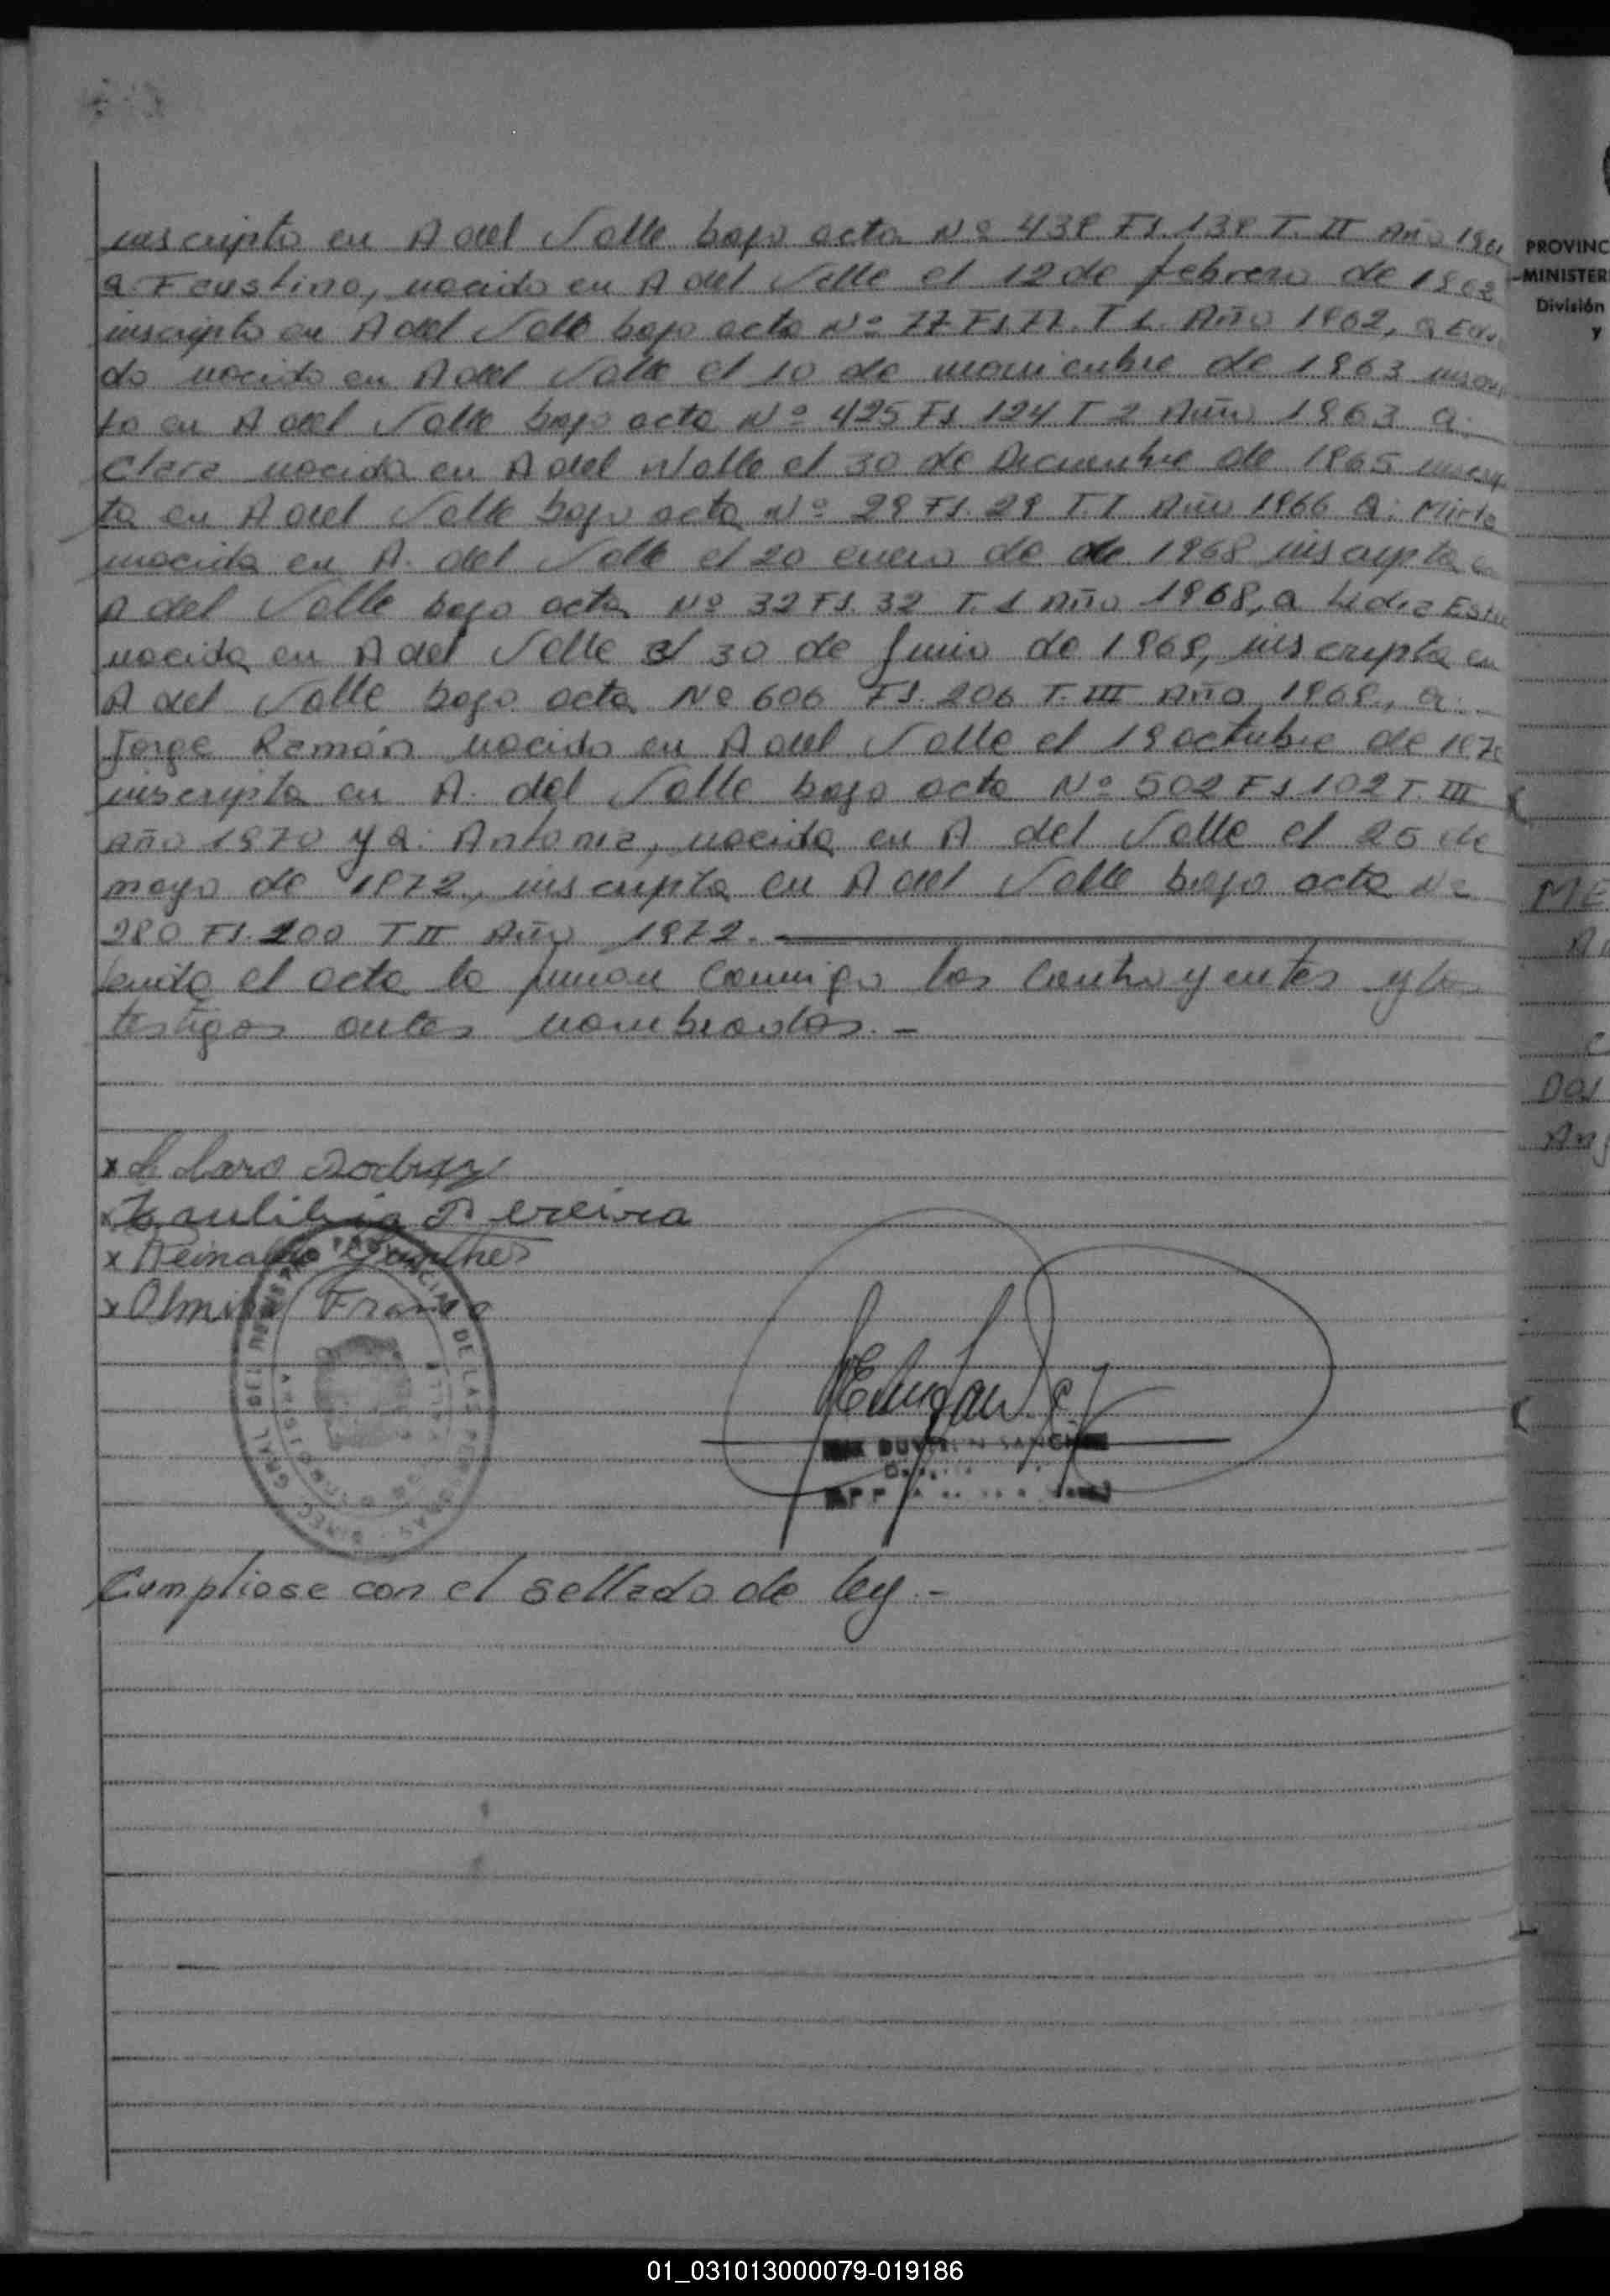 inscripto en A del Valle bajo acta Nº 439 Fs. 139 T. II Año 196
a Faustino, nacido en A del Valle el 12 de febrero de 1962
inscripto en A del Valle bajo acta Nº 77 Fs. 77. T 1. Año 1962, a
do nacido en A del Valle el 10 de noviembre de 1963 inscrip
to en A del Valle bajo acta Nº 425 Fs 124 T 2 Año 1963 a:
Clara nacida en A del Valle el 30 de Diciembre de 1965 inscrip
ta en A del Valle bajo acta Nº 29 Fs. 29 T. I Año 1966 a: Mirta
nacida en A. del Valle el 20 enero de de 1968 inscripta en
A del Valle bajo acta Nº 32 Fs. 32 T. 1 Año 1968, a Lidia
nacida en A del Valle el 30 de Junio de 1969, inscripta en
A del Valle bajo acta Nº 606 Fs. 206 T. III Año 1969, a:
Jorge Ramón nacido en A del Valle el 19 octubre de 1970
inscripta en A. del Valle bajo acta Nº 502 Fs 102 T. III
Año 1970 y a: Antonia, nacida en A del Valle el 25 de
mayo de 1972, inscripta en A del Valle bajo acta Nº
280 Fs. 200 T II Año 1972.
Leída el acta la firman conmigo los contrayentes y los
testigos antes nombrados. -
x Rodrigz
x Pereira
x Reinaldo
x Franco
DUVERLIN SANCHEZ
Cumpliose con el sellado de ley. -
PROVINC
MINISTER
División
y
01_031013000079-019186